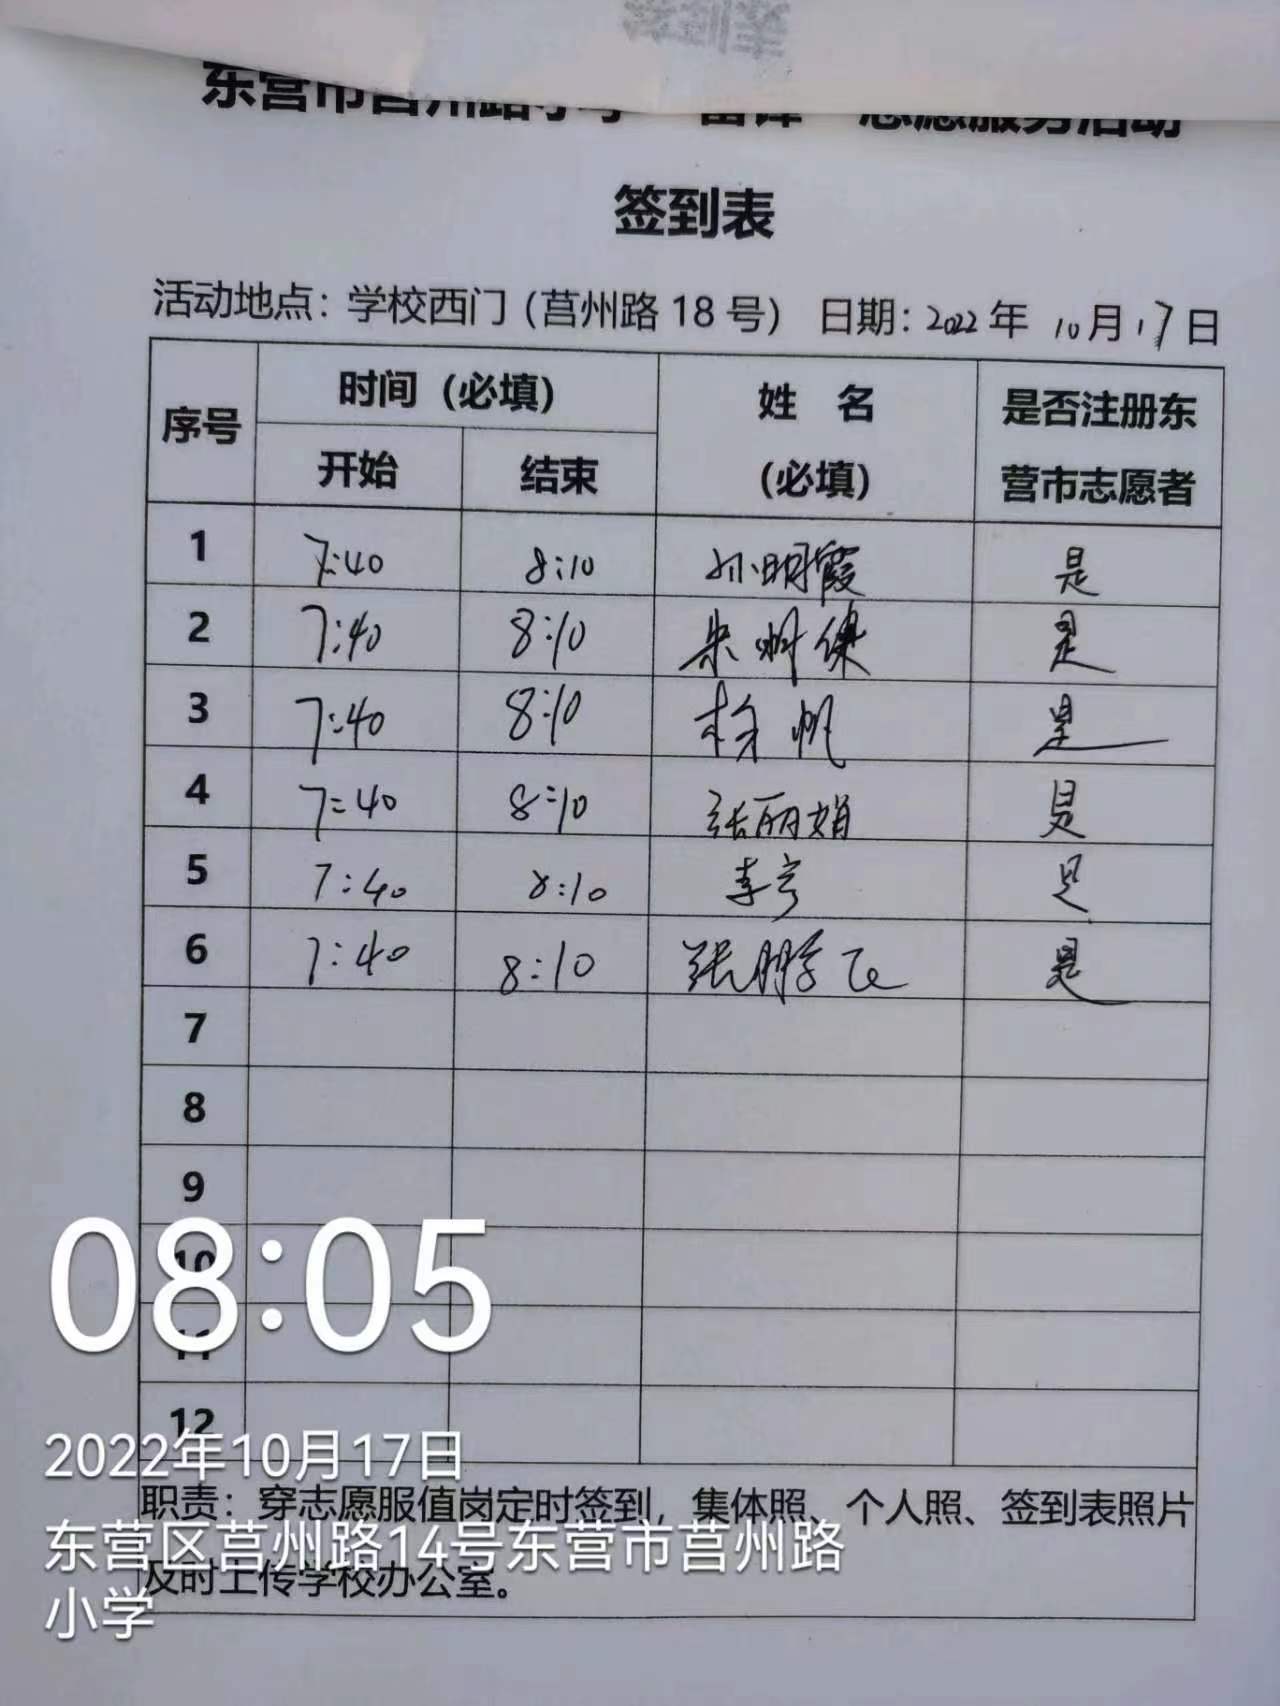 东营市莒州路小学“雷锋”志愿服务活动
签到表
活动地点：学校西门（莒州路18号） 日期：2022年 10月17日
序号 时间（必填） 姓 名（必填） 是否注册东营市志愿者
开始 结束
1 7:40 8:10 孙明霞 是
2 7:40 8:10 是
3 7:40 8:10 杨帆 是
4 7:40 8:10 张丽娟 是
5 7:40 8:10 李宁 是
6 7:40 8:10 张鹏飞 是
7
8
9
10
11
12
职责：穿志愿服值岗定时签到，集体照、个人照、签到表照片
及时上传学校办公室。
08:05
2022年10月17日
东营区莒州路14号东营市莒州路
小学